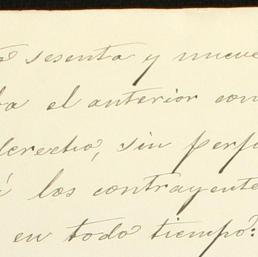 sesenta y nueve
el anterior con
derecho, sin perj
á los contrayente
en todo tiempo?